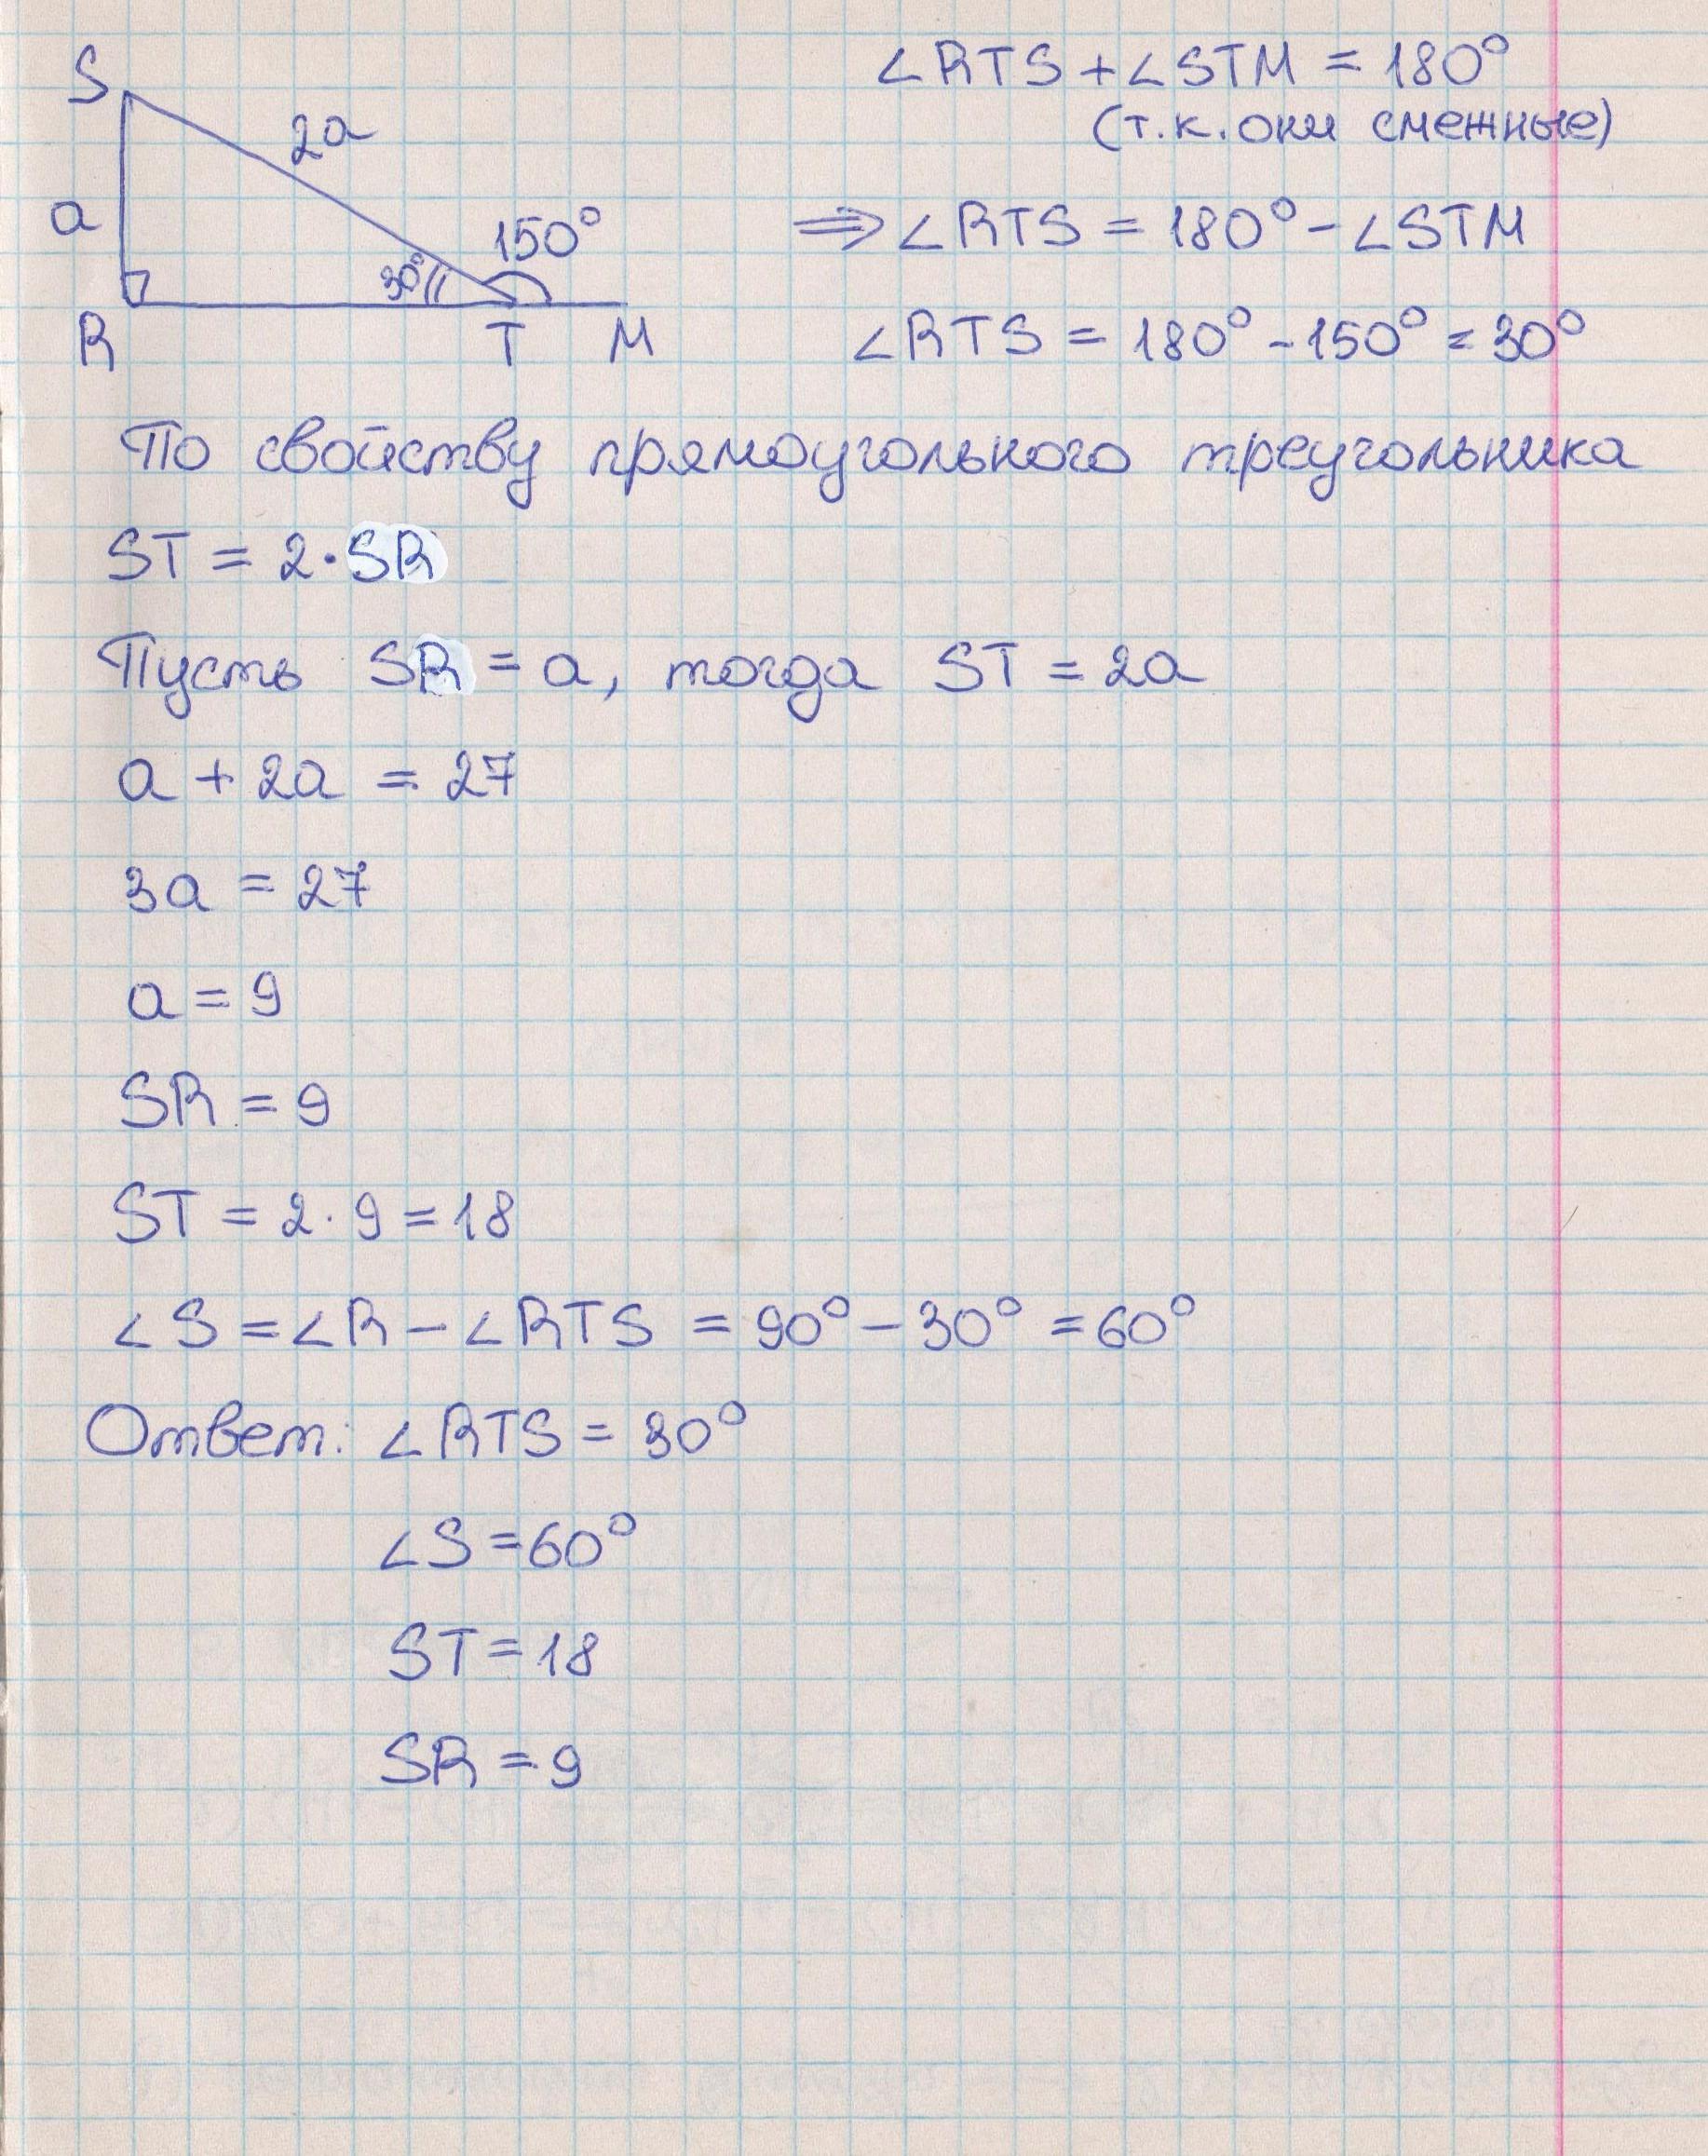 S
2a
a
150°
30°
R
T
M
∠RTS + ∠STM = 180°
(т.к. они смежные)
⇒ ∠RTS = 180° - ∠STM
∠RTS = 180° - 150° = 30°
По свойству прямоугольного треугольника
ST = 2·SR
Пусть SR = a, тогда ST = 2a
a + 2a = 27
3a = 27
a = 9
SR = 9
ST = 2·9 = 18
∠S = ∠R - ∠RTS = 90° - 30° = 60°
Ответ: ∠RTS = 30°
∠S = 60°
ST = 18
SR = 9